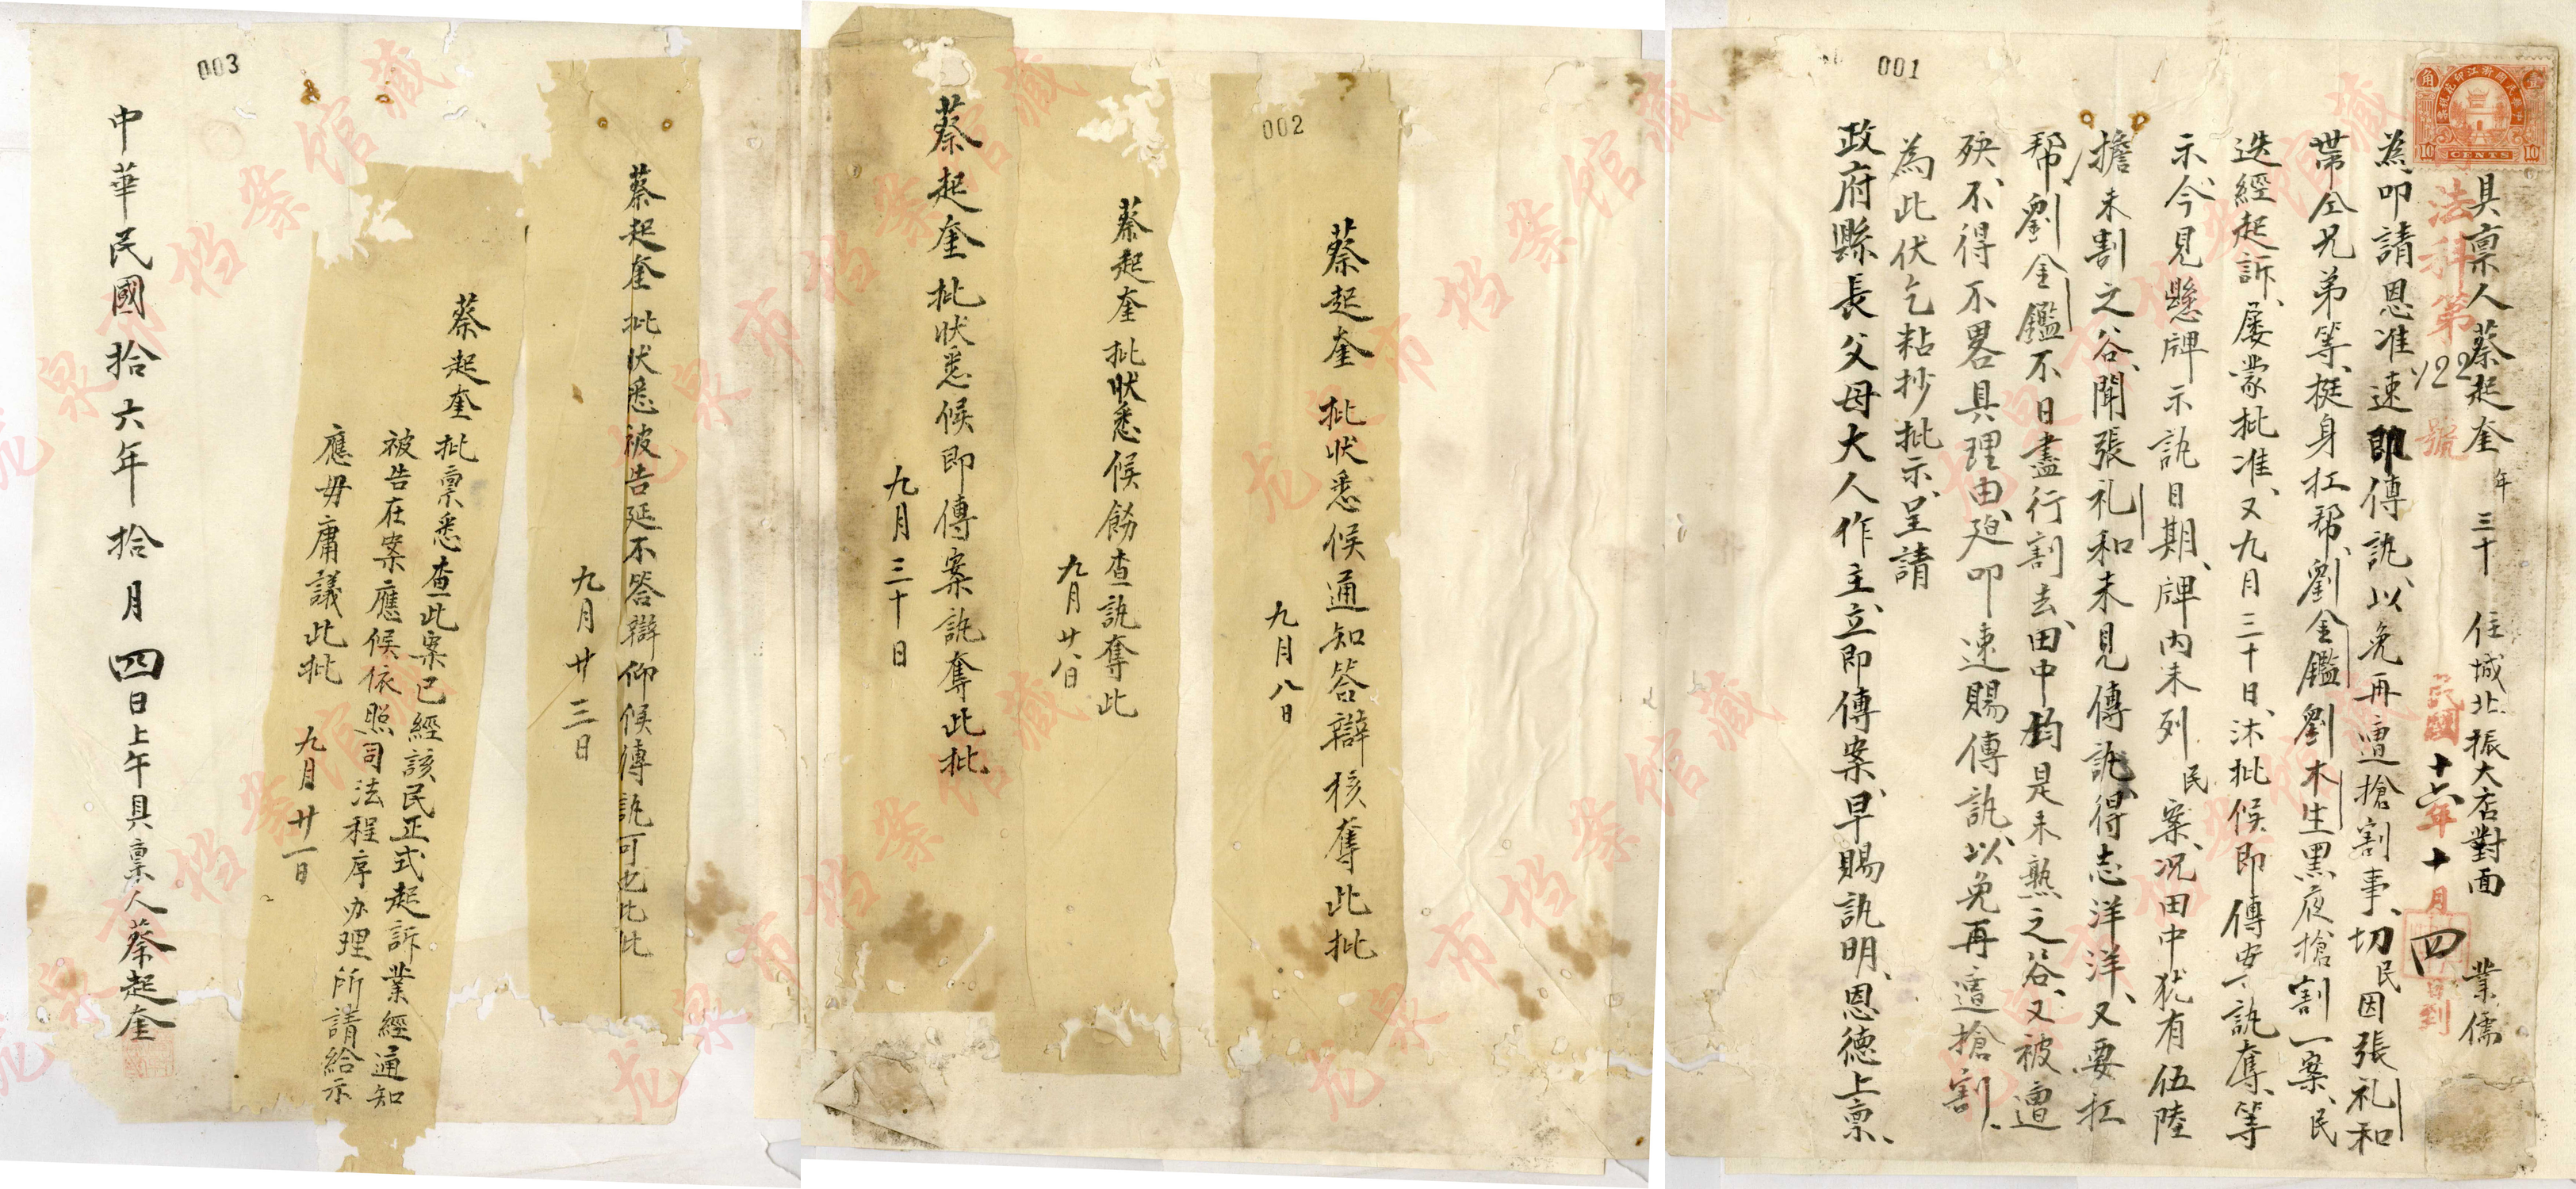 001
中華民國浙江印花稅票
壹角
10 CENTS 10
具稟人蔡起奎 年三十 住城北振大店對面 業儒
法科第122號
民國十六年十月四 到
為叩請恩准速即傳訊、以免再遭搶割事、切民因張礼和
帶仝兄弟等、挺身扛帮、劉金鑑劉木生黑夜搶割一案、民
迭經起訴、屡蒙批准、又九月三十日、沐批候即傳案訊奪、等
示、今見懸牌示訊日期、牌內未列民案、况田中犹有伍陸
擔未割之谷、聞張礼和未見傳訊、得志洋洋、又要扛
帮劉金鑑不日盡行割去、田中鈞是未熟之谷、又被遭
殃、不得不畧具理由、廹叩速賜傳訊、以免再遭搶割、
為此伏乞粘抄批示、呈請
政府縣長父母大人作主、立即傳案、早賜訊明、恩德上稟、
002
蔡起奎 批狀悉候通知答辯核奪此批
九月八日
蔡起奎批狀悉候飭查訊奪此
九月廿八日
蔡起奎 批狀悉候即傳案訊奪此批
九月三十日
003
蔡起奎 批狀悉被告延不答辯仰候傳訊可也此批
九月廿三日
蔡起奎 批稟悉查此案已經該民正式起訴業經通知
被告在案應候依照司法程序办理所請給示
應毋庸議此批 九月廿一日
中華民國拾六年拾月四日上午具稟人蔡起奎
龙泉市档案馆藏